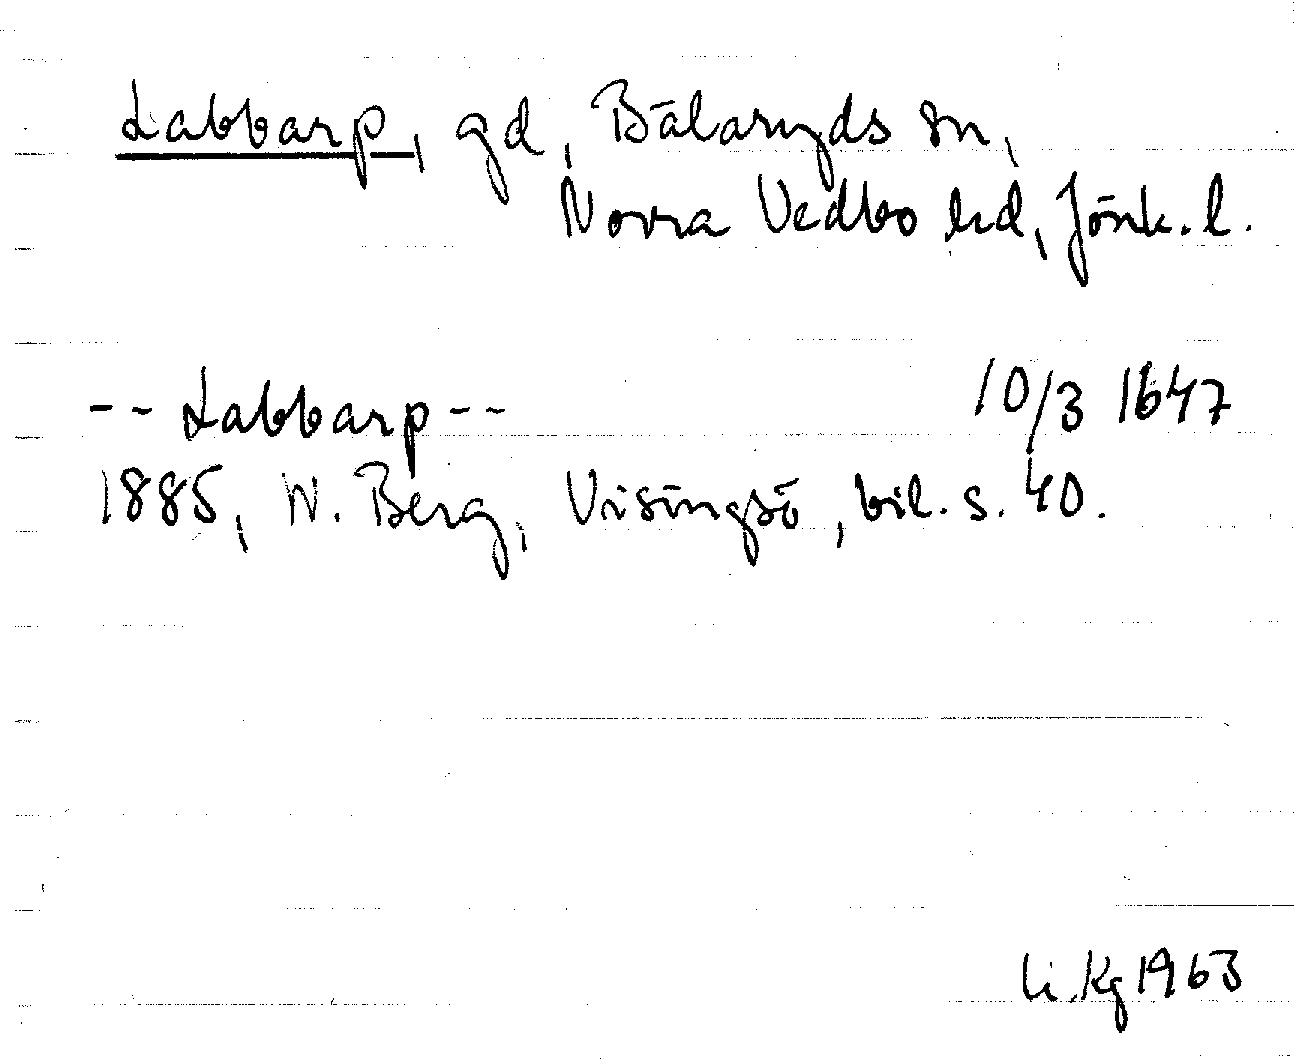 Labbarp, gd, Bälaryds sn,
Norra Vedbo hd, Jönk. l.
-- Labbarp -- 10/3 1647
1885, W. Berg, Visingsö, bil. s. 40.
Li.Kg 1963